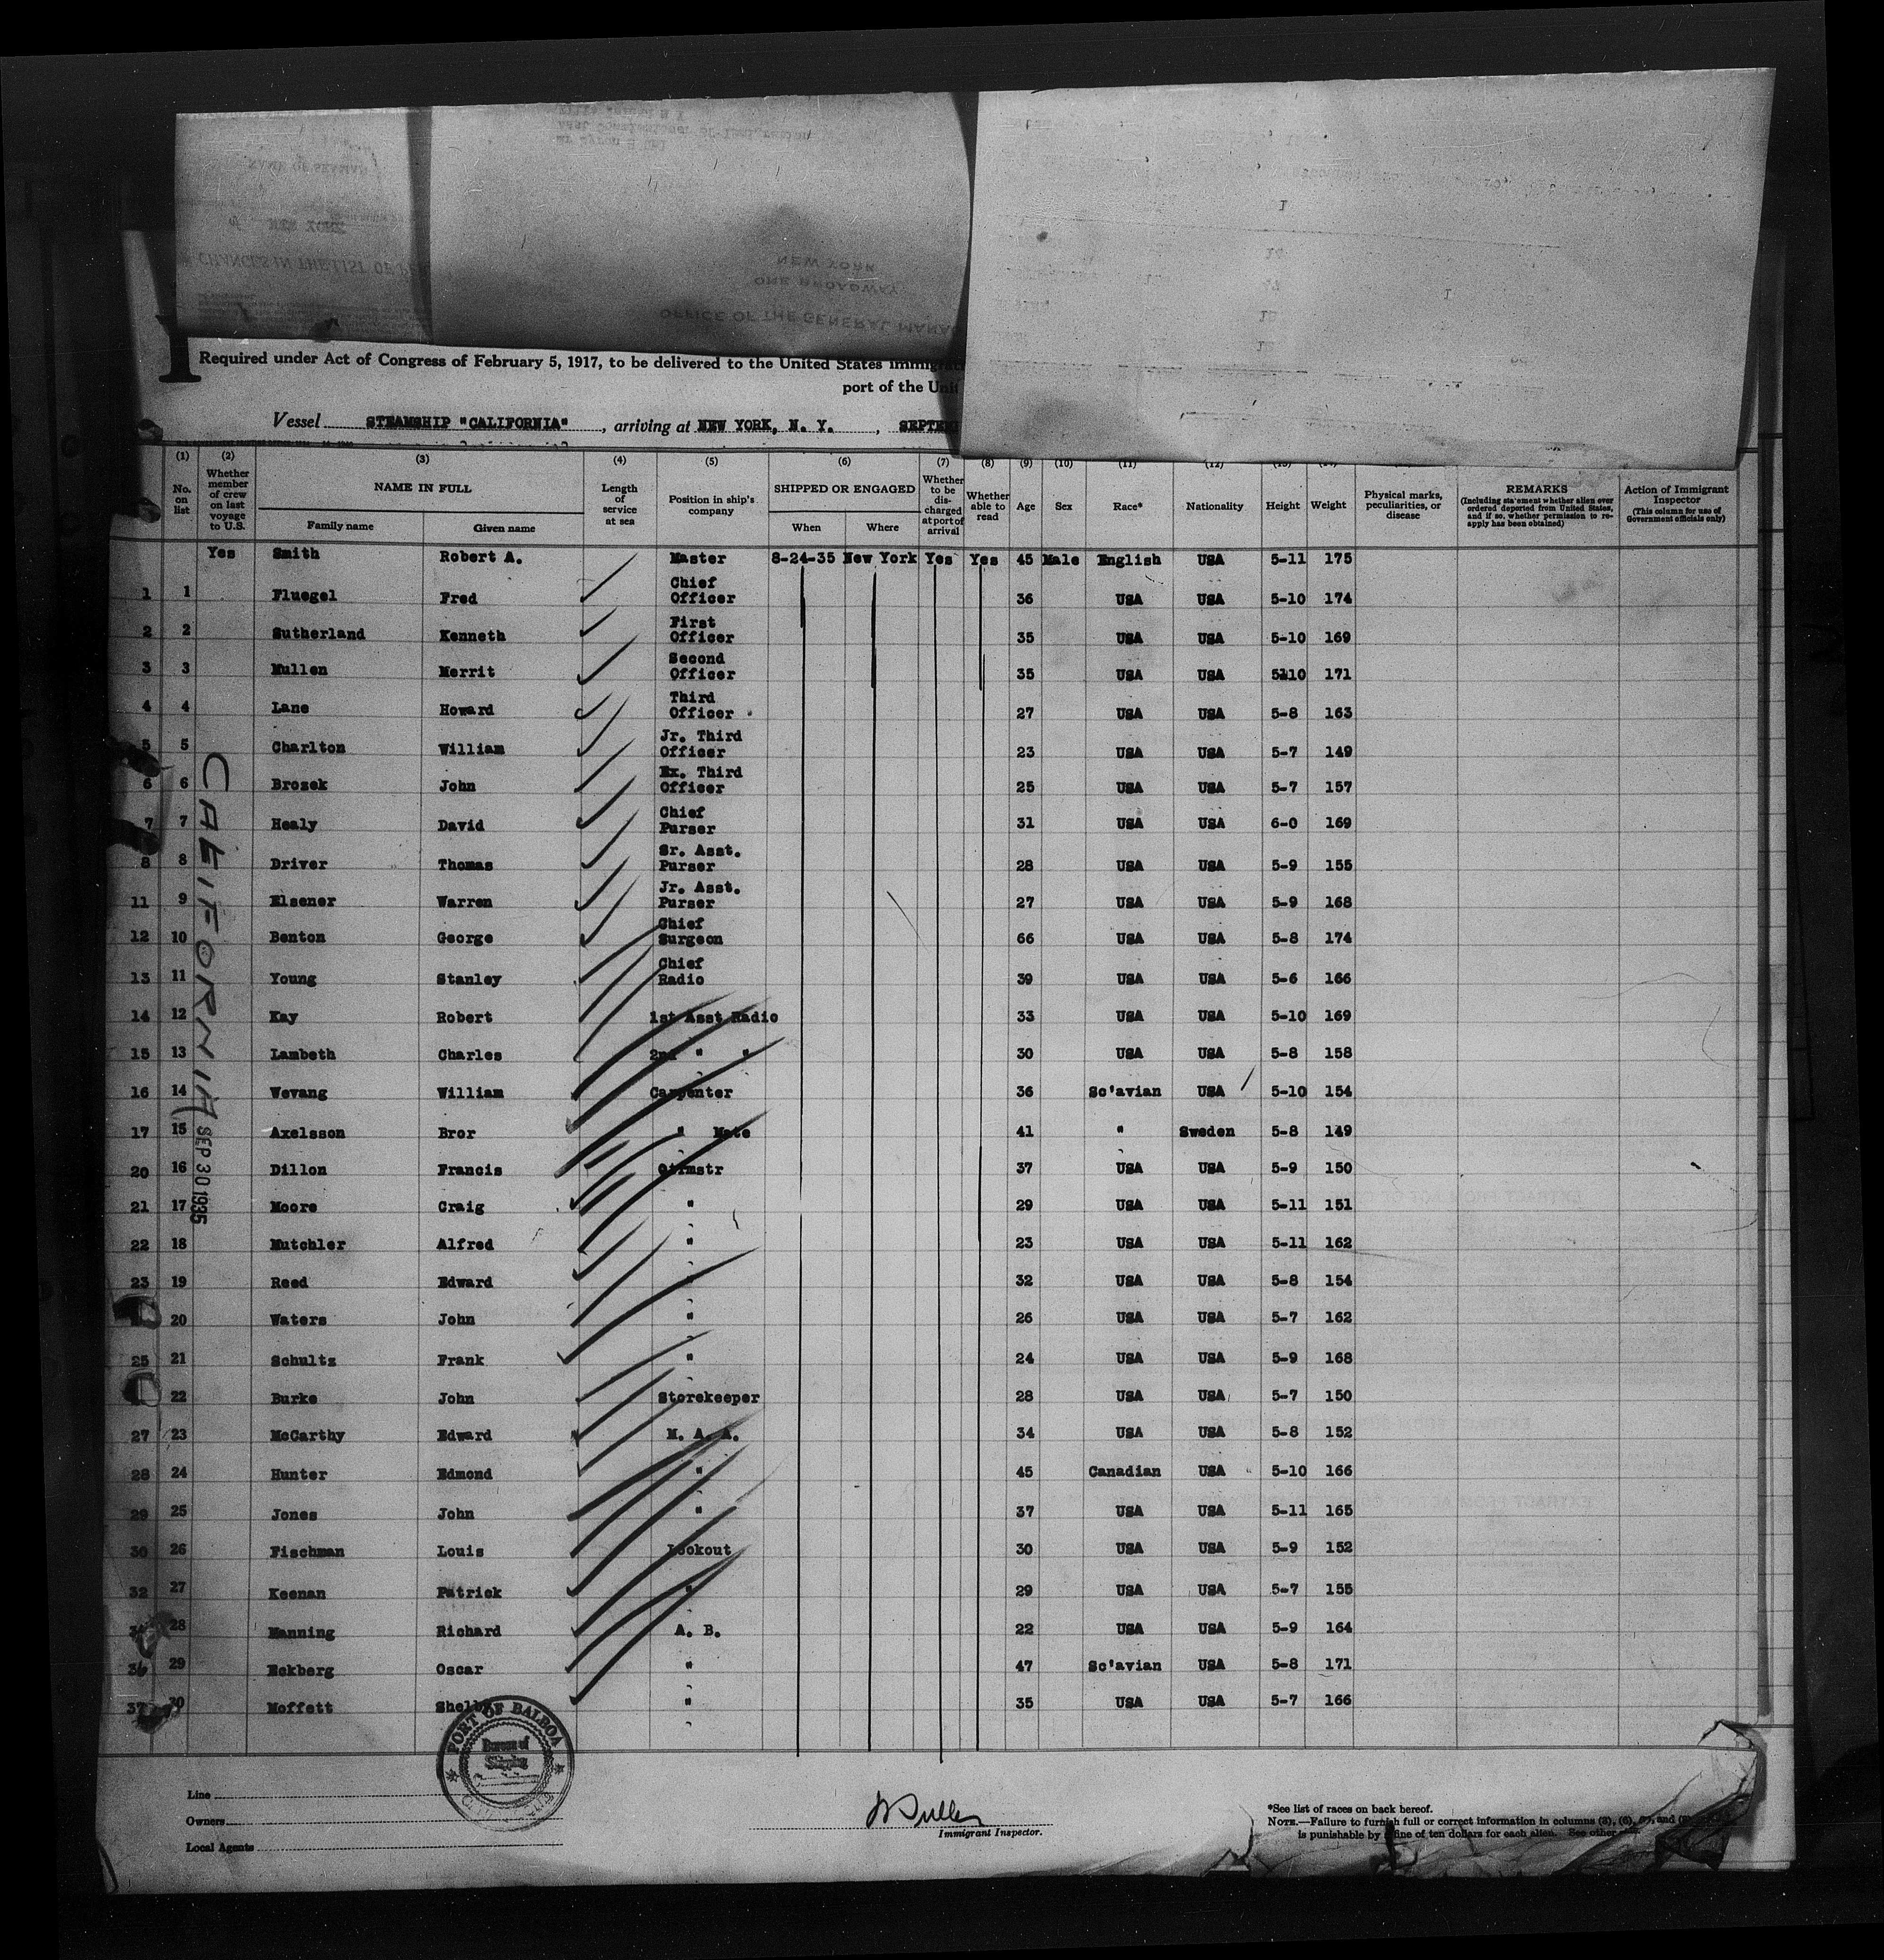 Required under Act of Congress of February 5, 1917, to be delivered to the United States
port of the
Vessel STEAMSHIP "CALIFORNIA", arriving at NEW YORK, N. Y.,
(1) (2) (3) (4) (5) (6) (7) (8) (9) (10) (11) (12) (13) (14)
No. on list Whether member of crew on last voyage to U.S. NAME IN FULL Family name Given name Length of service at sea Position in ship's company SHIPPED OR ENGAGED When Where Whether to be discharged at port of arrival Whether able to read Age Sex Race* Nationality Height Weight Physical marks, peculiarities, or disease REMARKS (Including statement whether alien ever ordered deported from United States, and if so, whether permission to re-apply has been obtained) Action of Immigrant Inspector (This column for use of Government officials only)
Yes Smith Robert A. Master 8-24-35 New York Yes Yes 45 Male English USA 5-11 175
1 1 Fluegel Fred Chief Officer 36 USA USA 5-10 174
2 2 Sutherland Kenneth First Officer 35 USA USA 5-10 169
3 3 Mullen Merrit Second Officer 35 USA USA 5-10 171
4 4 Lane Howard Third Officer 27 USA USA 5-8 163
5 5 Charlton William Jr. Third Officer 23 USA USA 5-7 149
6 6 Brozek John Ex. Third Officer 25 USA USA 5-7 157
7 7 Healy David Chief Purser 31 USA USA 6-0 169
8 8 Driver Thomas Sr. Asst. Purser 28 USA USA 5-9 155
11 9 Elsener Warren Jr. Asst. Purser 27 USA USA 5-9 168
12 10 Benton George Chief Surgeon 66 USA USA 5-8 174
13 11 Young Stanley Chief Radio 39 USA USA 5-6 166
14 12 Kay Robert 1st Asst Radio 33 USA USA 5-10 169
15 13 Lambeth Charles 2nd " " 30 USA USA 5-8 158
16 14 Wevang William Carpenter 36 Sc'avian USA 5-10 154
17 15 Axelsson Bror " Mate 41 " Sweden 5-8 149
20 16 Dillon Francis Qtrmstr 37 USA USA 5-9 150
21 17 Moore Craig " 29 USA USA 5-11 151
22 18 Mutchler Alfred " 23 USA USA 5-11 162
23 19 Reed Edward " 32 USA USA 5-8 154
20 Waters John " 26 USA USA 5-7 162
25 21 Schultz Frank " 24 USA USA 5-9 168
22 Burke John Storekeeper 28 USA USA 5-7 150
27 23 McCarthy Edward M. A. A. 34 USA USA 5-8 152
28 24 Hunter Edmond " 45 Canadian USA 5-10 166
29 25 Jones John " 37 USA USA 5-11 165
30 26 Fischman Louis Lookout 30 USA USA 5-9 152
32 27 Keenan Patrick " 29 USA USA 5-7 155
28 Manning Richard A. B. 22 USA USA 5-9 164
36 29 Eckberg Oscar " 47 Sc'avian USA 5-8 171
37 30 Moffett Shelby " 35 USA USA 5-7 166
CALIFORNIA SEP 30 1935
PORT OF BALBOA
Bureau of
Shipping
Line
Owners
Local Agents
Immigrant Inspector.
*See list of races on back hereof.
NOTE.—Failure to furnish full or correct information in columns (3), (6), (7), and
is punishable by a fine of ten dollars for each alien. See other
NAME OF SEAMAN
NEW YORK
CHANGES IN THE LIST OF
NEW YORK
ONE BROADWAY
OFFICE OF THE GENERAL